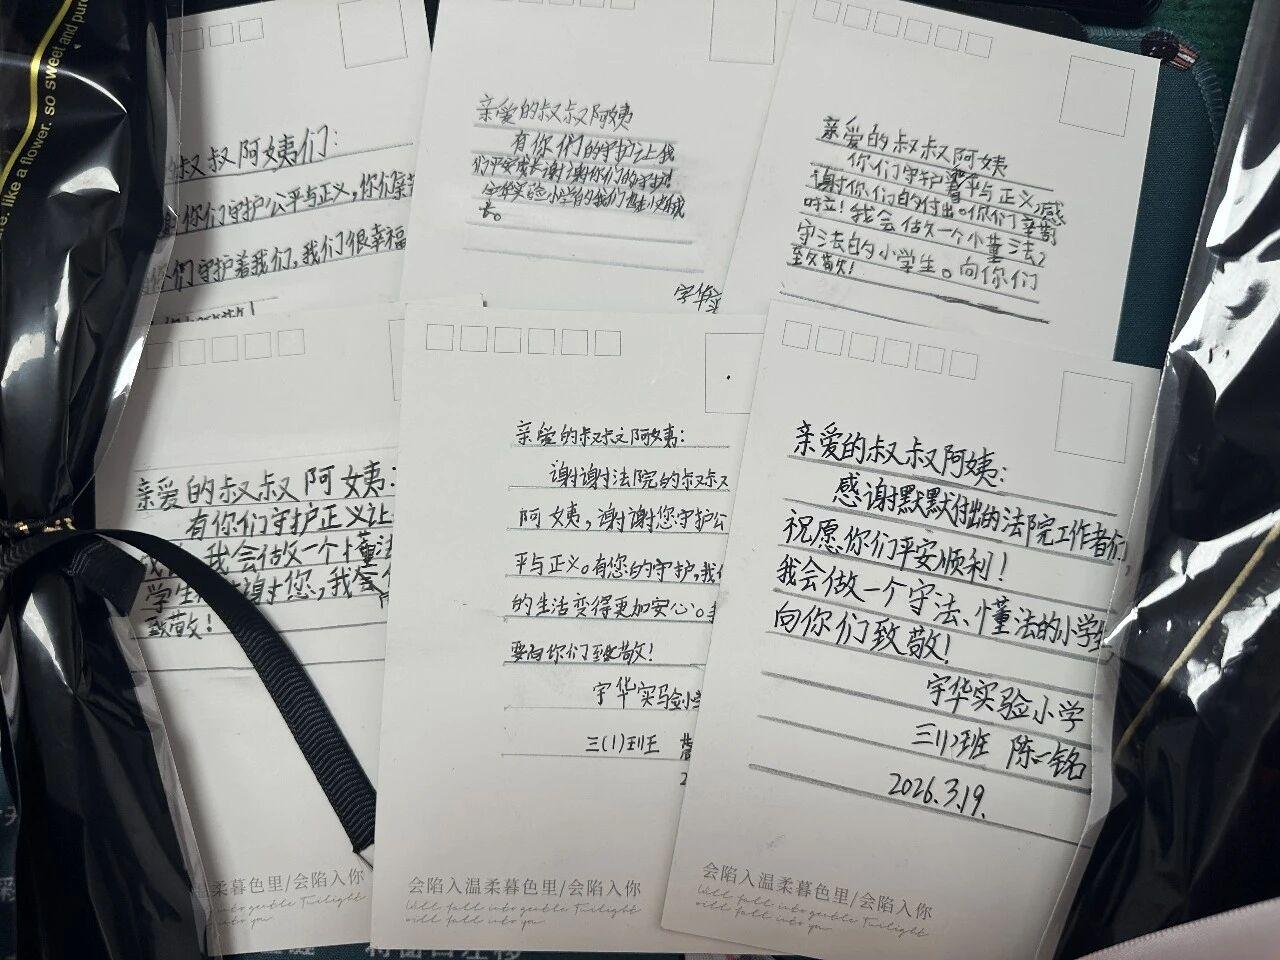 like a flower. so sweet and pure
叔叔阿姨们:
你们守护公平与正义,你们辛苦
你们守护着我们,我们很幸福
亲爱的叔叔阿姨
有你们的守护让我
们平安成长谢谢你们的守护!
宇华实验小学的我们
宇华实
亲爱的叔叔阿姨
你们守护着平与正义,感
谢你们的付出。你们辛苦
啦!我会做一个小董法
守法的小学生。向你们
至文敬!
亲爱的叔叔阿姨:
有你们守护正义让
我会做一个懂法
学生 谢谢您,我会
致敬!
亲爱的叔叔阿姨:
谢谢法院的叔叔
阿姨,谢谢您守护公
平与正义。有您的守护,我们
的生活变得更加安心。
要向你们致敬!
宇华实验小学
三(1)班
亲爱的叔叔阿姨:
感谢默默付出的法院工作者们,
祝愿你们平安顺利!
我会做一个守法、懂法的小学生
向你们致敬!
宇华实验小学
三(1)班 陈一铭
2026.3.19.
温柔暮色里/会陷入你
into gentle Twilight
into you
会陷入温柔暮色里/会陷入你
Will fall into gentle Twilight
will fall into you
会陷入温柔暮色里/会陷入你
Will fall into gentle Twilight
will fall into you